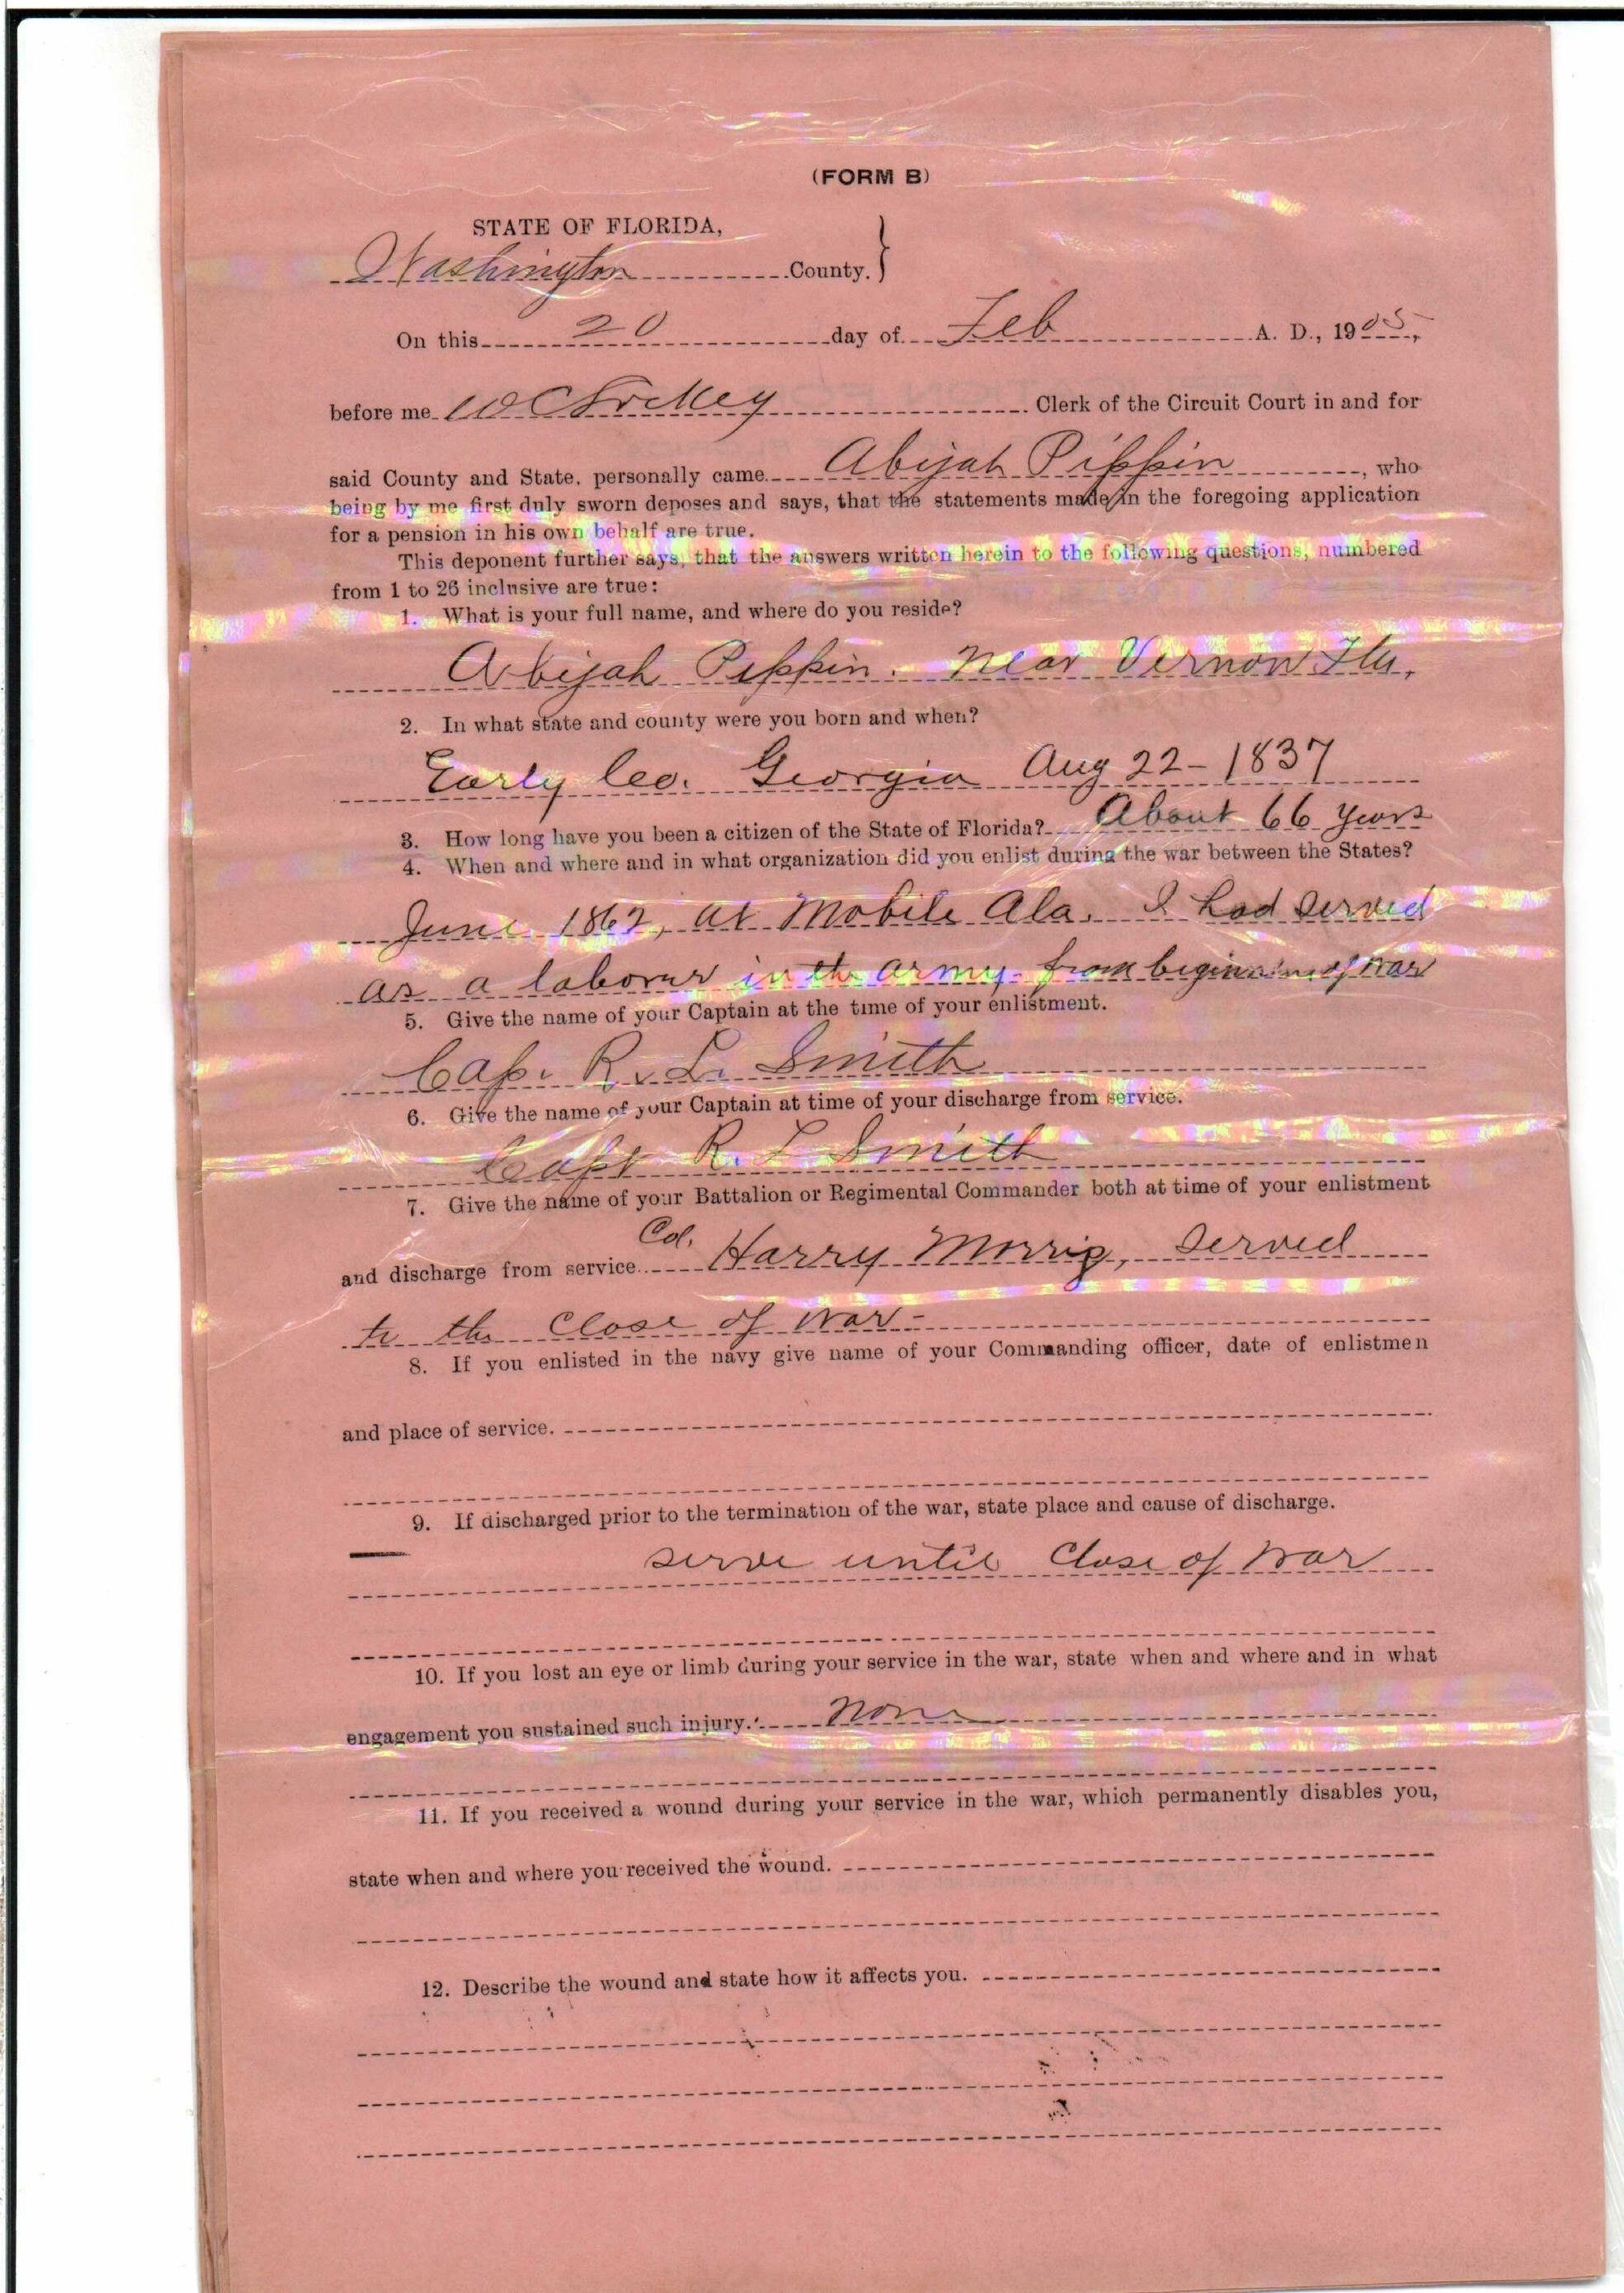 (FORM B)
STATE OF FLORIDA,
Washington County.
On this 20 day of Feb A. D., 1905,
before me W C Clerk of the Circuit Court in and for
said County and State, personally came Abijah Pippin, who
being by me first duly sworn deposes and says, that the statements made in the foregoing application
for a pension in his own behalf are true.
This deponent further says, that the answers written herein to the following questions, numbered
from 1 to 26 inclusive are true:
1. What is your full name, and where do you reside?
Abijah Pippin. Near Vernon Fla.
2. In what state and county were you born and when?
Early Co. Georgia Aug 22-1837
3. How long have you been a citizen of the State of Florida? About 66 years
4. When and where and in what organization did you enlist during the war between the States?
June 1862, at Mobile Ala. I had served
as a laborer in the army from beginning of War
5. Give the name of your Captain at the time of your enlistment.
Cap. R. L. Smith
6. Give the name of your Captain at time of your discharge from service.
Capt R. L Smith
7. Give the name of your Battalion or Regimental Commander both at time of your enlistment
and discharge from service. Col. Harry Morris, served
to the close of war-
8. If you enlisted in the navy give name of your Commanding officer, date of enlistmen
and place of service.
9. If discharged prior to the termination of the war, state place and cause of discharge.
serve until Close of War
10. If you lost an eye or limb during your service in the war, state when and where and in what
engagement you sustained such injury. None
11. If you received a wound during your service in the war, which permanently disables you,
state when and where you received the wound.
12. Describe the wound and state how it affects you.